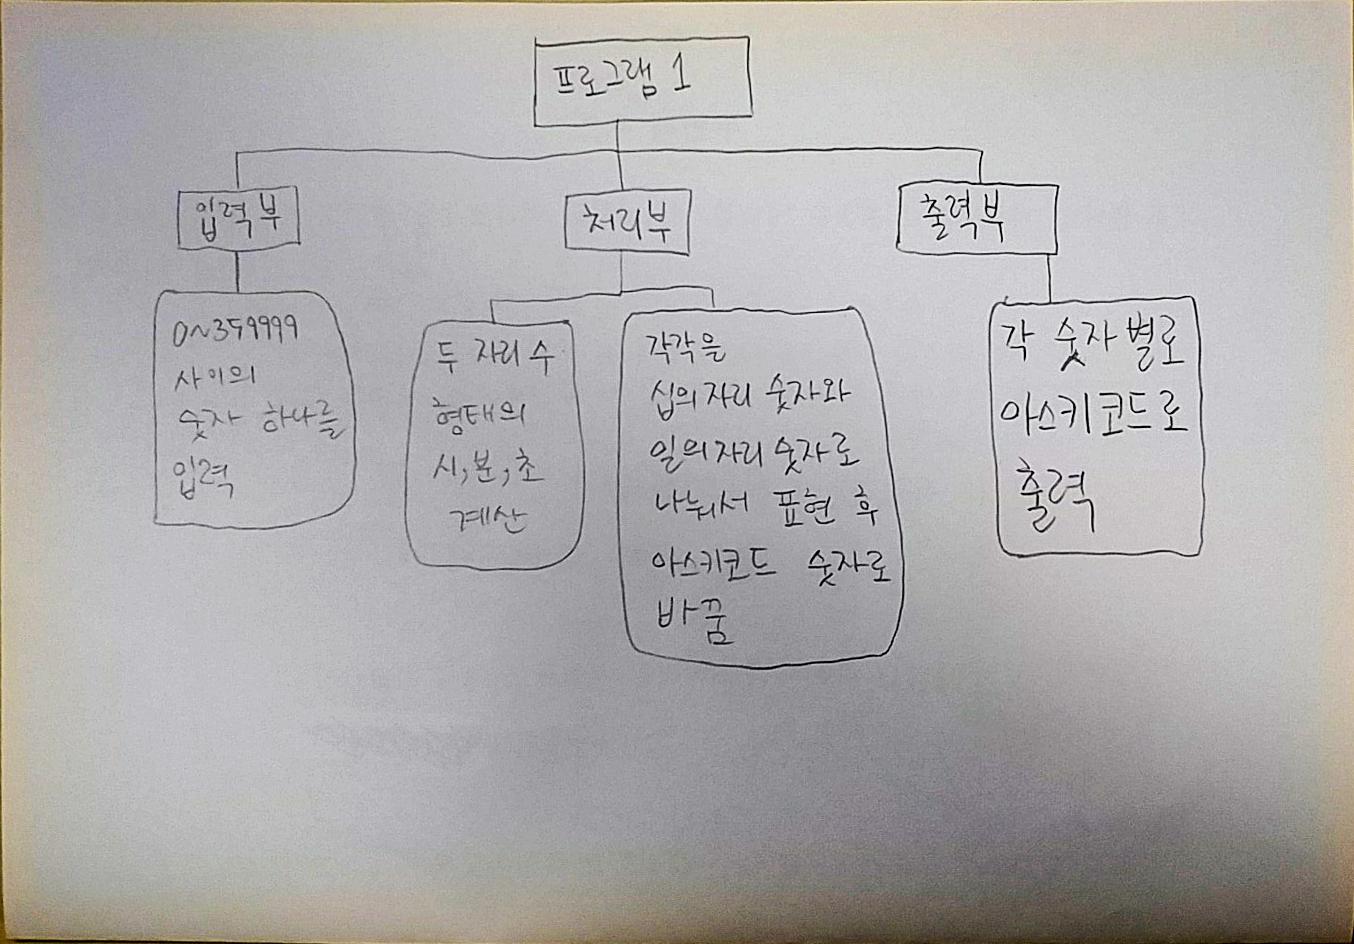 프로그램 1
입력부
처리부
출력부
0~359999
사이의
숫자 하나를
입력
두 자리 수
형태의
시,분,초
계산
각각을
십의자리 숫자와
일의자리 숫자로
나눠서 표현 후
아스키코드 숫자로
바꿈
각 숫자별로
아스키코드로
출력